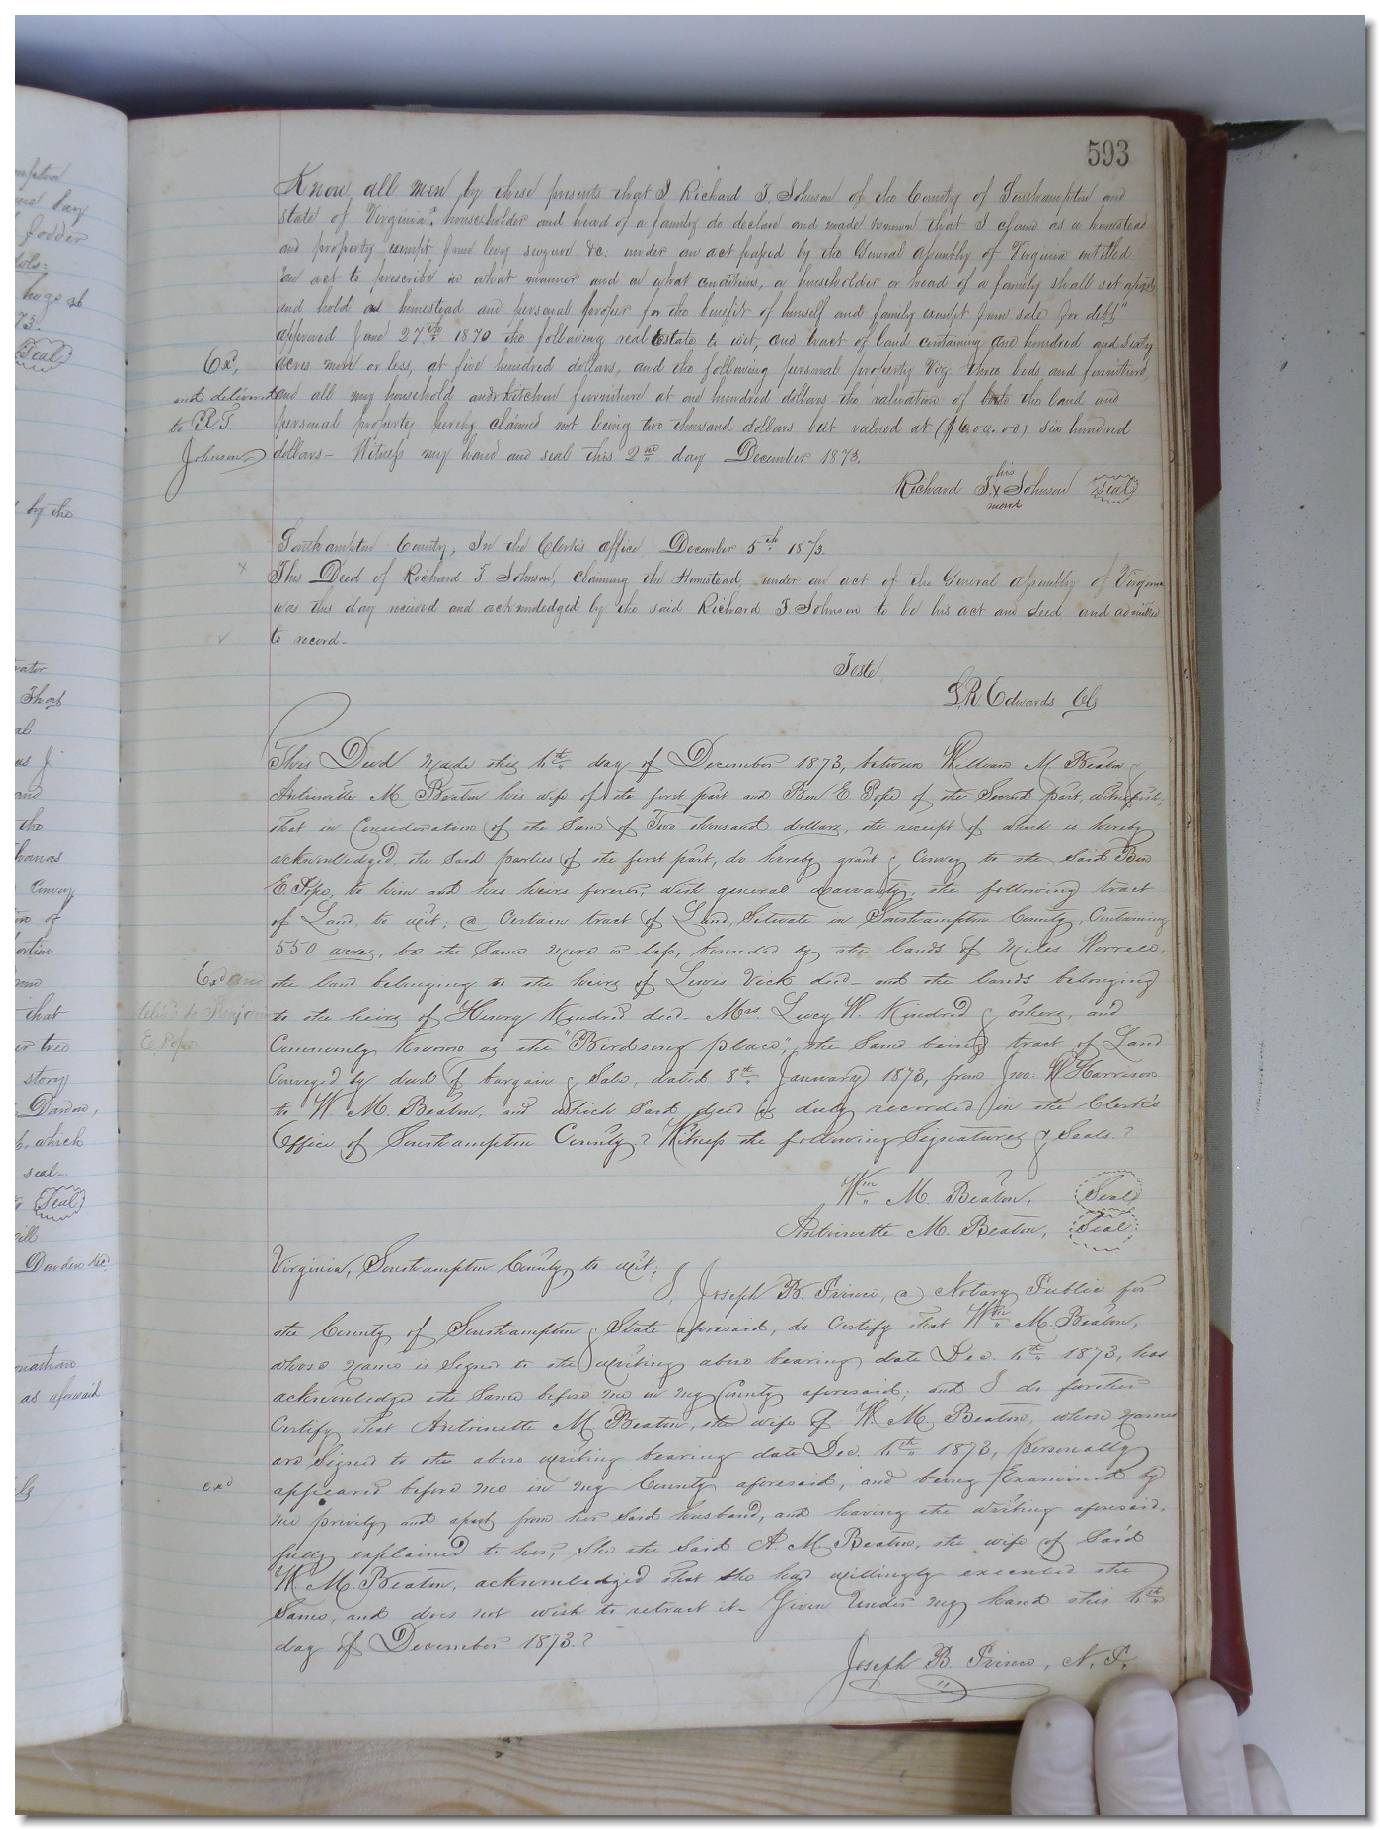 593
Know all men by these presents that I Richard T. Johnson of the County of Southampton and
state of Virginia a householder and head of a family do declare and made known that I claim as a homestead
and property exempt from levy seizure &c. under an act passed by the General assembly of Virginia entitled
"an act to prescribe in what manner and on what conditions, a householder or head of a family shall set apart
and hold as homestead and personal proper for the benefit of himself and family exempt from sale for debt"
approved June 27th 1870 the following real Estate to wit, one tract of land containing one hundred and sixty
acres more or less, at five hundred dollars, and the following personal property Viz: three beds and furniture
and all my household and kitchen furniture at one hundred dollars the valuation of the land and
personal property hereby claimed not being two thousand dollars but valued at ($600.00) six hundred
dollars - Witness my hand and seal this 2nd day December 1873.
Exd,
and delivered
to R T
Johnson
his
Richard T. x Johnson Seal
mark
Southampton County, In the Clerk's office December 5th 1873.
This Deed of Richard T Johnson, claiming the Homestead, under an act of the General assembly of Virginia
was this day received and acknowledged by the said Richard T. Johnson to be his act and deed and admitted
to record -
Teste
L R Edwards Clk
This Deed made this 6th day of December 1873, between William M Beaton &
Antoinette M Beaton his wife of the first part and Ben E. Pope of the Second part, witnesseth,
that in Consideration of the Sum of Two thousand dollars, the receipt of which is hereby
acknowledged, the said parties of the first part, do hereby grant & Convey to the said Ben
E Pope, to him and his heirs forever, with general warranty, the following tract
of Land, to wit; a Certain tract of Land, Situate in Southampton County, Containing
550 acres, be the Same more or less, bounded by the lands of Miles Worrell,
the land belonging to the heirs of Lewis Vick decd - and the lands belonging
to the heirs of Henry Kindred decd - Mrs. Lucy W. Kindred & others, and
Commonly Known as the "Birdsong place", the Same being tract of Land
Conveyed by deed of bargain & Sale, dated 8th January 1873, from Jno: W. Harrison
to W M. Beaton, and which said deed is duly recorded in the Clerk's
Office of Southampton County? Witness the following Signatures & Seals.?
Exd and
delivd to Benjamin
E. Pope
Wm M. Beaton, Seal
Antoinette M. Beaton, Seal
Virginia, Southampton County, to wit;
I, Joseph B. Prince, a Notary Public for
the County of Southampton & State aforesaid, do Certify that Wm M. Beaton,
whose name is Signed to the writing above bearing date Dec. 6th 1873, has
acknowledge the Same before me in my County aforesaid; and I do further
Certify that Antoinette M Beaton, the wife of W. M. Beaton, whose names
are Signed to the above writing bearing date Dec. 6th 1873, personally
appeared before me in my County aforesaid, and being Examined by
me privily and apart from her said husband, and having the writing aforesaid,
fully explained to her, She the said A. M. Beaton, the wife of Said
W. M. Beaton, acknowledged that She had willingly executed the
Same, and does not wish to retract it - Given Under my hand this 6th
day of December 1873.?
exd
Joseph B Prince, N. P.